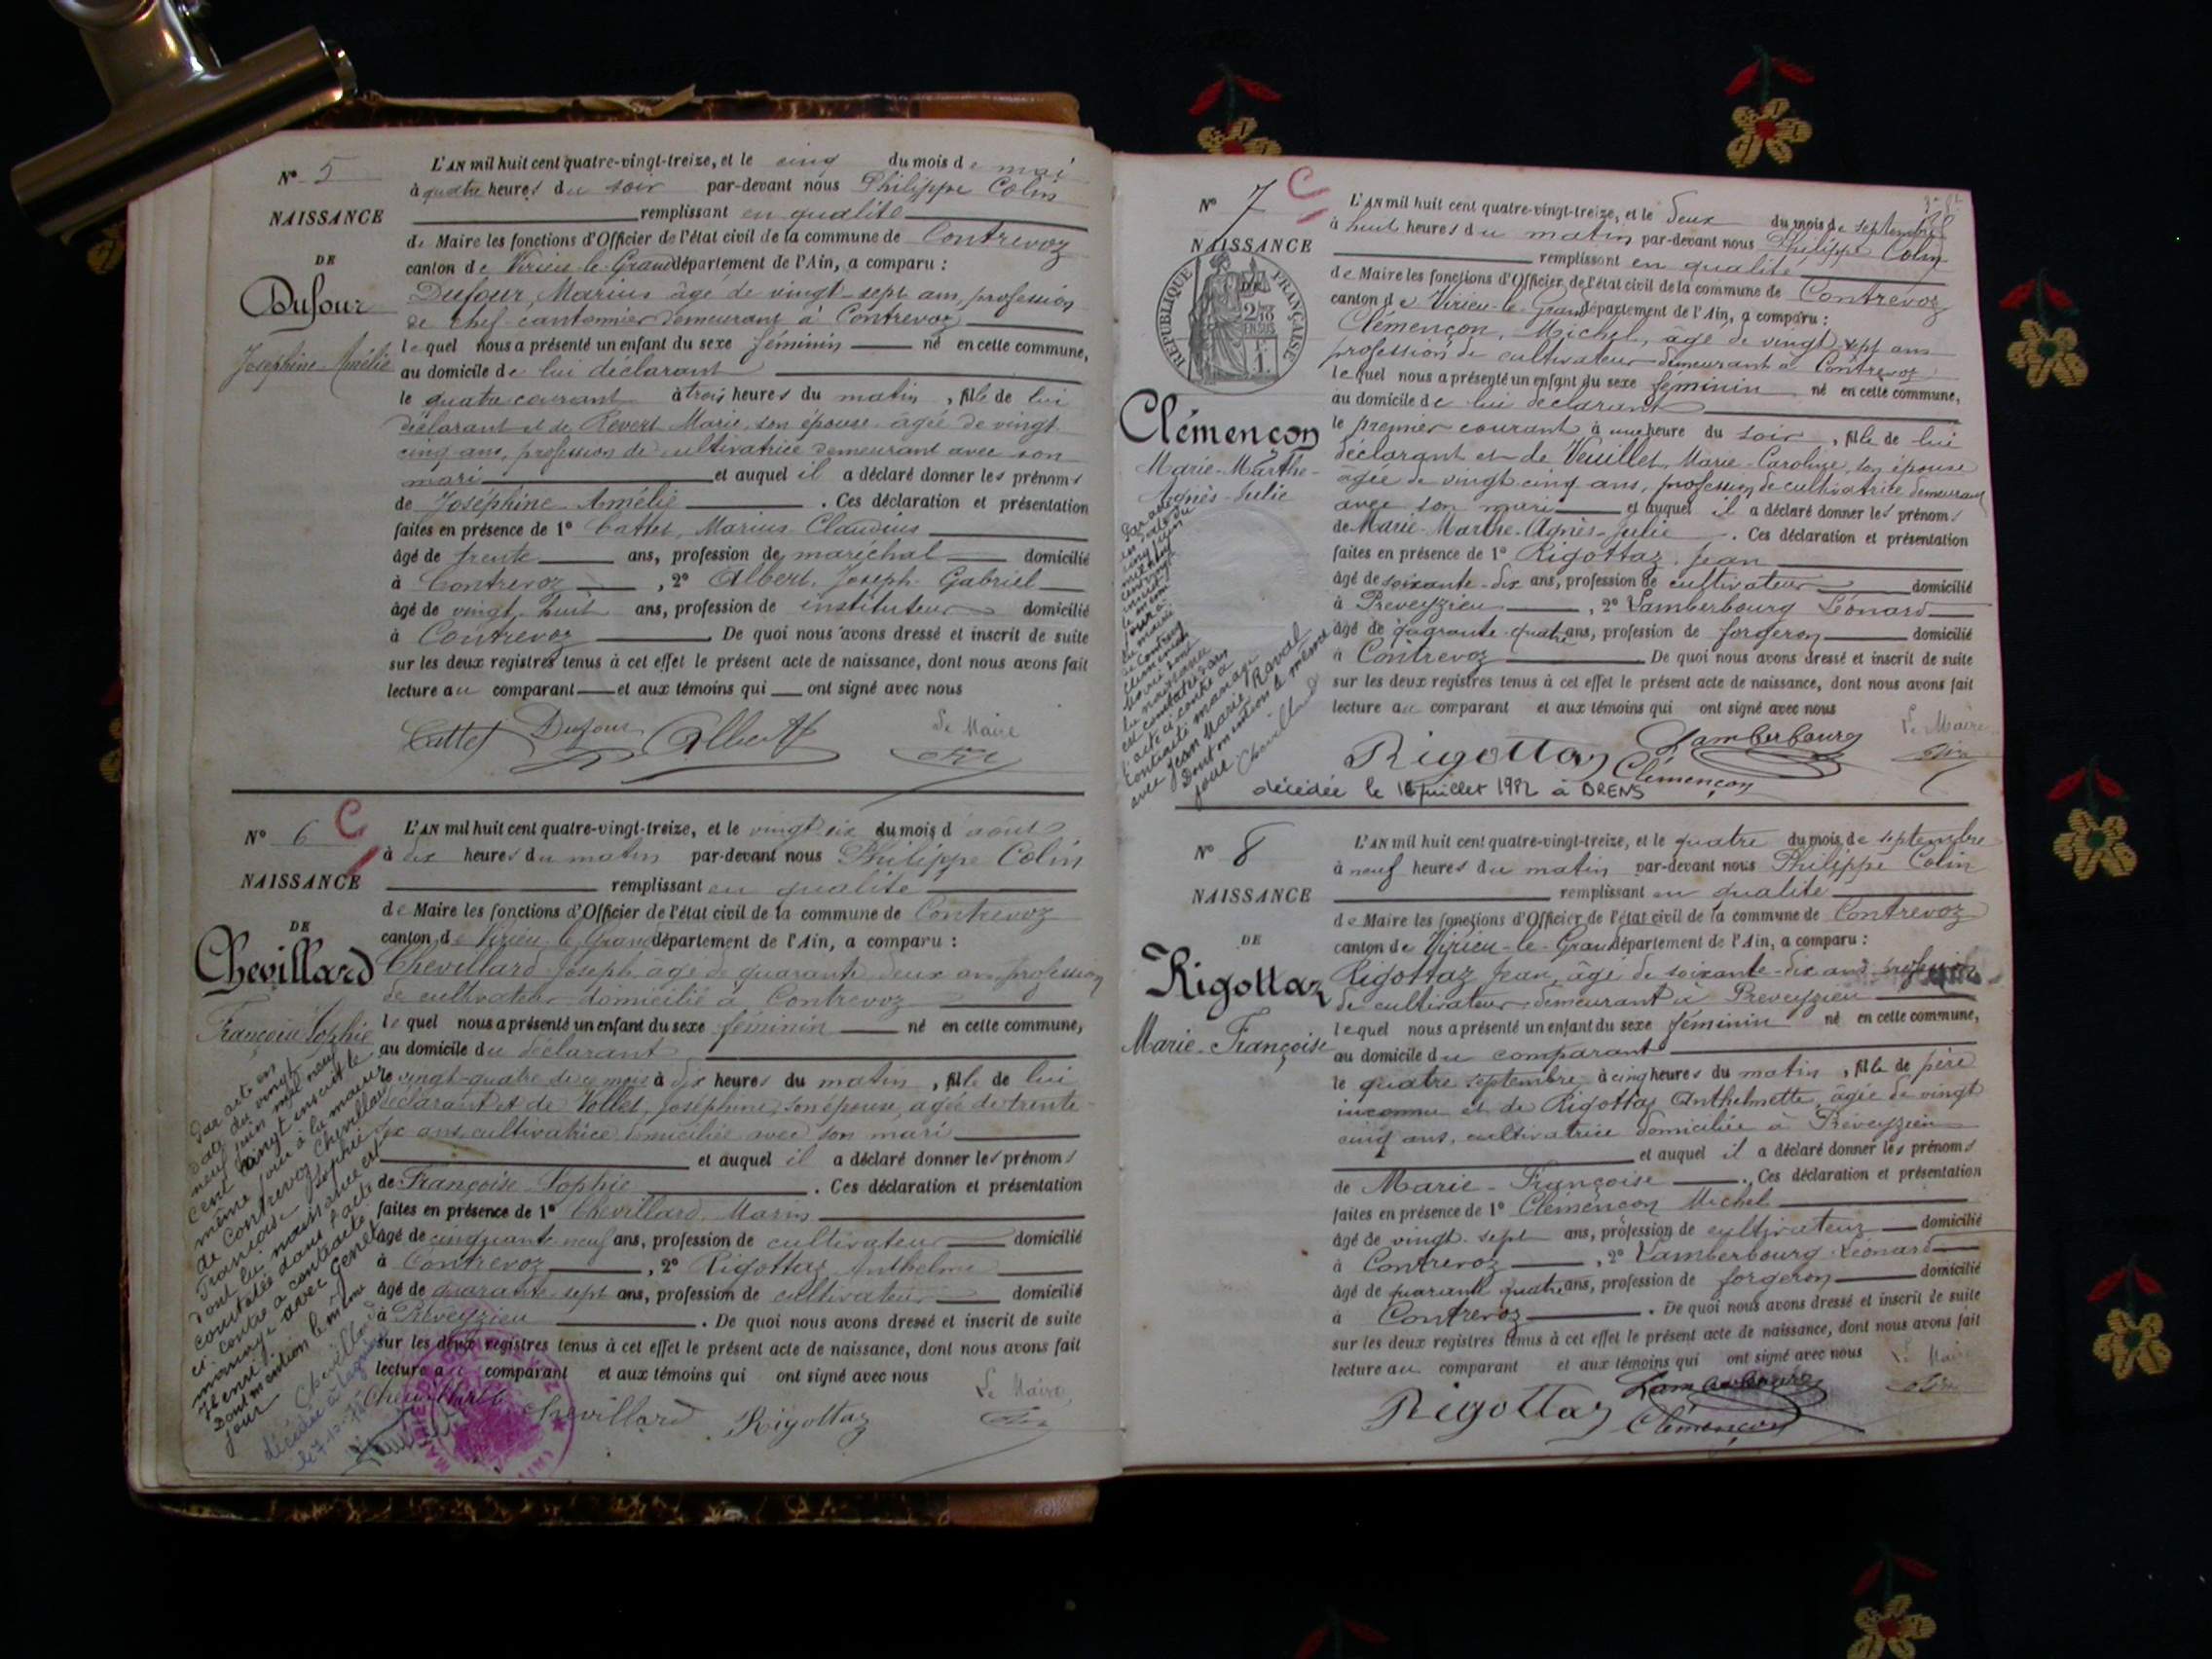 N° 5
NAISSANCE
DE
Dufour
Joséphine Amélie
L'AN mil huit cent quatre-vingt-treize, et le cinq du mois de mai
à quatre heures du soir par-devant nous Philippe Colin
remplissant en qualité
de Maire les fonctions d'Officier de l'état civil de la commune de Contrevoz
canton de Virieu-le-Grand département de l'Ain, a comparu :
Dufour, Marius âgé de vingt-sept ans, profession
de chef-cantonnier demeurant à Contrevoz
lequel nous a présenté un enfant du sexe féminin né en cette commune,
au domicile de lui déclarant
le quatre courant à trois heures du matin, fille de lui
déclarant et de Revert Marie, son épouse, âgée de vingt
cinq ans, profession de cultivatrice demeurant avec son
mari et auquel il a déclaré donner les prénoms
de Joséphine Amélie . Ces déclaration et présentation
faites en présence de 1° Cattet, Marius Claudius
âgé de trente ans, profession de maréchal domicilié
à Contrevoz , 2° Albert, Joseph Gabriel
âgé de vingt huit ans, profession de instituteur domicilié
à Contrevoz . De quoi nous avons dressé et inscrit de suite
sur les deux registres tenus à cet effet le présent acte de naissance, dont nous avons fait
lecture au comparant et aux témoins qui ont signé avec nous
Cattet Dufour Albert Le Maire
N° 6 C
NAISSANCE
DE
Chevillard
Françoise Sophie
L'AN mil huit cent quatre-vingt-treize, et le vingt six du mois d'août
à dix heures du matin par-devant nous Philippe Colin
remplissant en qualité
de Maire les fonctions d'Officier de l'état civil de la commune de Contrevoz
canton de Virieu le Grand département de l'Ain, a comparu :
Chevillard Joseph âgé de quarante deux ans, profession
de cultivateur domicilié à Contrevoz
lequel nous a présenté un enfant du sexe féminin né en cette commune,
au domicile du déclarant
le vingt-quatre de ce mois à dix heures du matin, fille de lui
déclarant et de Vollet, Joséphine, son épouse, âgée de trente-
six ans, cultivatrice domiciliée avec son mari
et auquel il a déclaré donner les prénoms
de Françoise Sophie . Ces déclaration et présentation
faites en présence de 1° Chevillard, Marin
âgé de cinquante neuf ans, profession de cultivateur domicilié
à Contrevoz , 2° Rigottaz Anthelme
âgé de quarante sept ans, profession de cultivateur domicilié
à Préveyzieu . De quoi nous avons dressé et inscrit de suite
sur les deux registres tenus à cet effet le présent acte de naissance, dont nous avons fait
lecture au comparant et aux témoins qui ont signé avec nous
Chevillard Rigottaz Le Maire
Par acte en
date du vingt
neuf juin mil neuf
cent vingt inscrit le
même jour à la mairie
de Contrevoz Chevillard
Françoise Sophie
dont la naissance est
constatée dans l'acte
ci-contre a contracté
mariage avec Genet
Henri
Dont mention le même
jour
Chevillard
décédée à Lagnieu
N° 7 C
NAISSANCE
DE
RÉPUBLIQUE FRANÇAISE
2/10 EN SUS
Clémençon
Marie-Marthe-
Agnès-Julie
L'AN mil huit cent quatre-vingt-treize, et le deux du mois de septembre
à huit heures du matin par-devant nous Philippe Colin
remplissant en qualité
de Maire les fonctions d'Officier de l'état civil de la commune de Contrevoz
canton de Virieu-le-Grand département de l'Ain, a comparu :
Clémençon, Michel, âgé de vingt sept ans
profession de cultivateur demeurant à Contrevoz
lequel nous a présenté un enfant du sexe féminin né en cette commune,
au domicile de lui déclarant
le premier courant à une heure du soir, fille de lui
déclarant et de Veuillet, Marie-Caroline, son épouse
âgée de vingt cinq ans, profession de cultivatrice demeurant
avec son mari et auquel il a déclaré donner les prénoms
de Marie-Marthe-Agnès-Julie . Ces déclaration et présentation
faites en présence de 1° Rigottaz, Jean
âgé de soixante-dix ans, profession de cultivateur domicilié
à Preveyzieu , 2° Lamberbourg Léonard
âgé de quarante-quatre ans, profession de forgeron domicilié
à Contrevoz De quoi nous avons dressé et inscrit de suite
sur les deux registres tenus à cet effet le présent acte de naissance, dont nous avons fait
lecture au comparant et aux témoins qui ont signé avec nous
Rigottaz Lamberbourg Clémençon Le Maire
contracté mariage
avec Jean Marie Ravel
Dont mention le même
jour Chevillard
décédée le 16 juillet 1982 à BRENS
N° 8
NAISSANCE
DE
Rigottaz
Marie-Françoise
L'AN mil huit cent quatre-vingt-treize, et le quatre du mois de septembre
à neuf heures du matin par-devant nous Philippe Colin
remplissant en qualité
de Maire les fonctions d'Officier de l'état civil de la commune de Contrevoz
canton de Virieu-le-Grand département de l'Ain, a comparu :
Rigottaz Jean, âgé de soixante-dix ans profession
de cultivateur demeurant à Preveyzieu
lequel nous a présenté un enfant du sexe féminin né en cette commune,
au domicile du comparant
le quatre septembre à cinq heures du matin, fille de père
inconnu et de Rigottaz Anthelmette, âgée de vingt
cinq ans, cultivatrice domiciliée à Preveyzieu
et auquel il a déclaré donner les prénoms
de Marie-Françoise . Ces déclaration et présentation
faites en présence de 1° Clémençon Michel
âgé de vingt-sept ans, profession de cultivateur domicilié
à Contrevoz , 2° Lamberbourg Léonard
âgé de quarante quatre ans, profession de forgeron domicilié
à Contrevoz . De quoi nous avons dressé et inscrit de suite
sur les deux registres tenus à cet effet le présent acte de naissance, dont nous avons fait
lecture au comparant et aux témoins qui ont signé avec nous
Rigottaz Lamberbourg Clémençon Le Maire